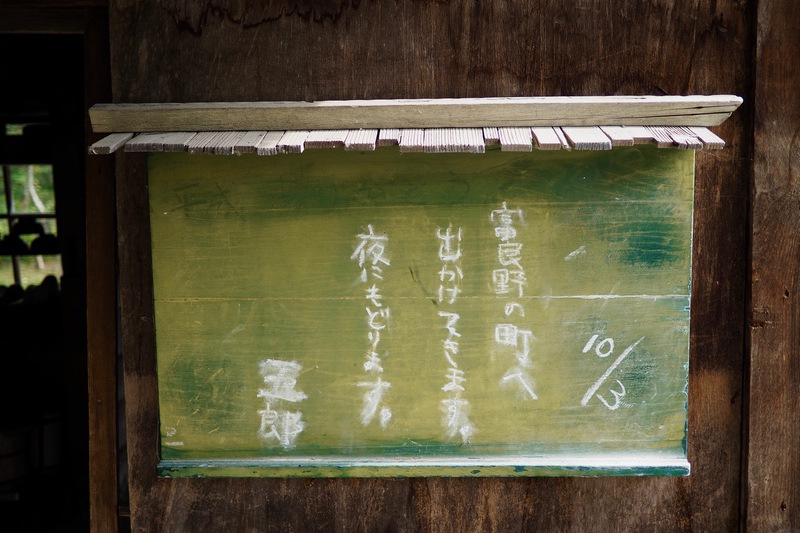 10/3
富良野の町へ
出かけてきます。
夜にもどります。
五郎